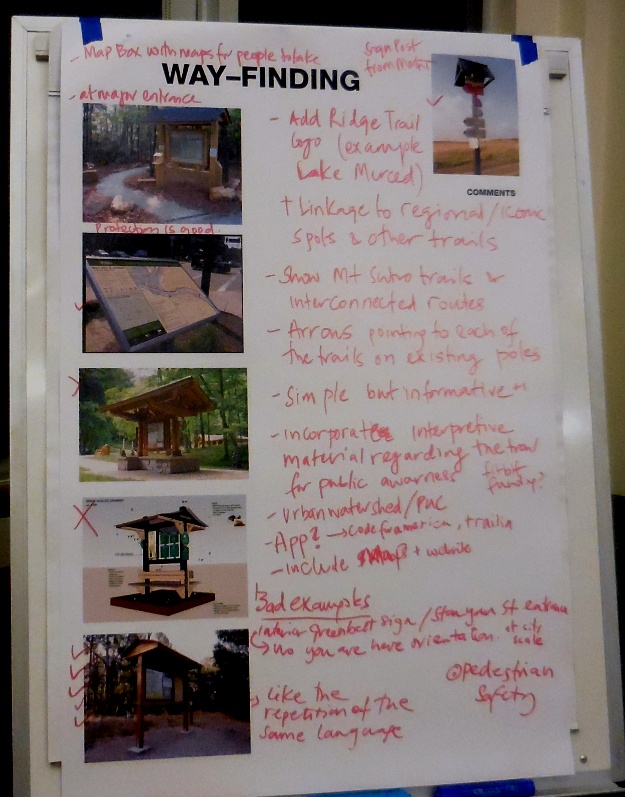 - Map Box with maps for people to take
Sign Post
from
WAY–FINDING
- at major entrance
- Add Ridge Trail
logo (example
Lake Merced)
COMMENTS
+ Linkage to regional/iconic
spots & other trails
Protection is good
- Show Mt Sutro trails &
interconnected routes
- Arrows pointing to each of
the trails on existing poles
- Simple but informative +1
- incorporate interpretive
material regarding the
for public awarness
- Urban watershed/PUC
- App? → code for america,
- include + website
Bad examples
interior greenbelt sign / Stanyan St entrance
↳ no you are here orientation at city
scale
@pedestrian
safety
Like the
repetition of the
same language